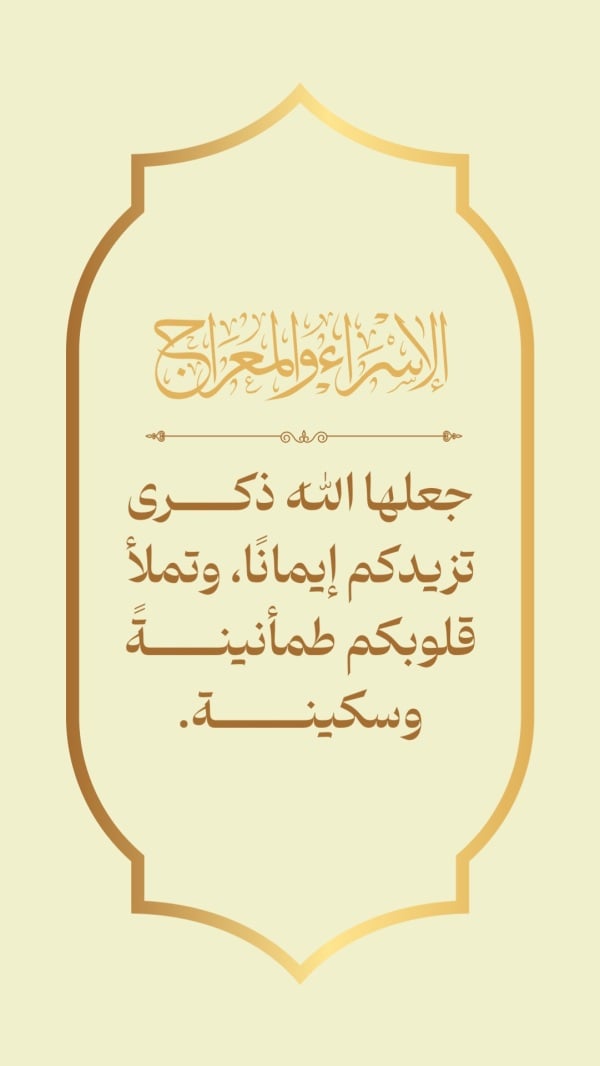 الإسراء والمعراج
جعلها الله ذكـــــرى
تزيدكم إيمانًا، وتملأ
قلوبكم طمأنينـــــةً
وسكينـــــــة.